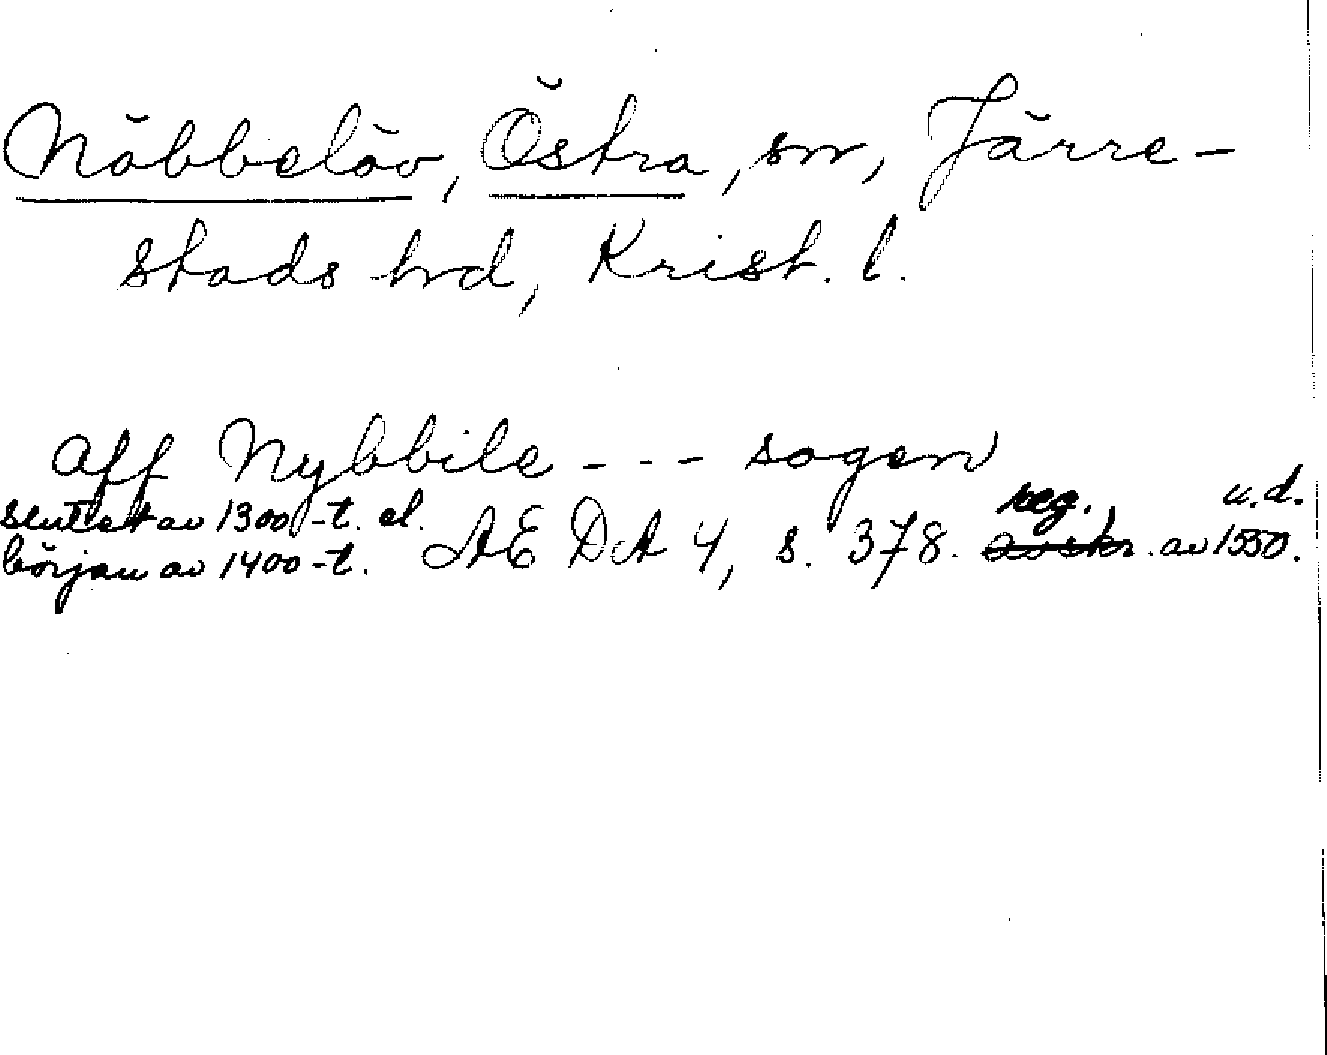 Nöbbelöv, Östra, sn, Järre-
stads hd, Krist. l.
aff Nybbile --- sogen
slutet av 1300-t. el. reg. u.d.
början av 1400-t. ÆDA 4, s. 378. avskr. av 1550.